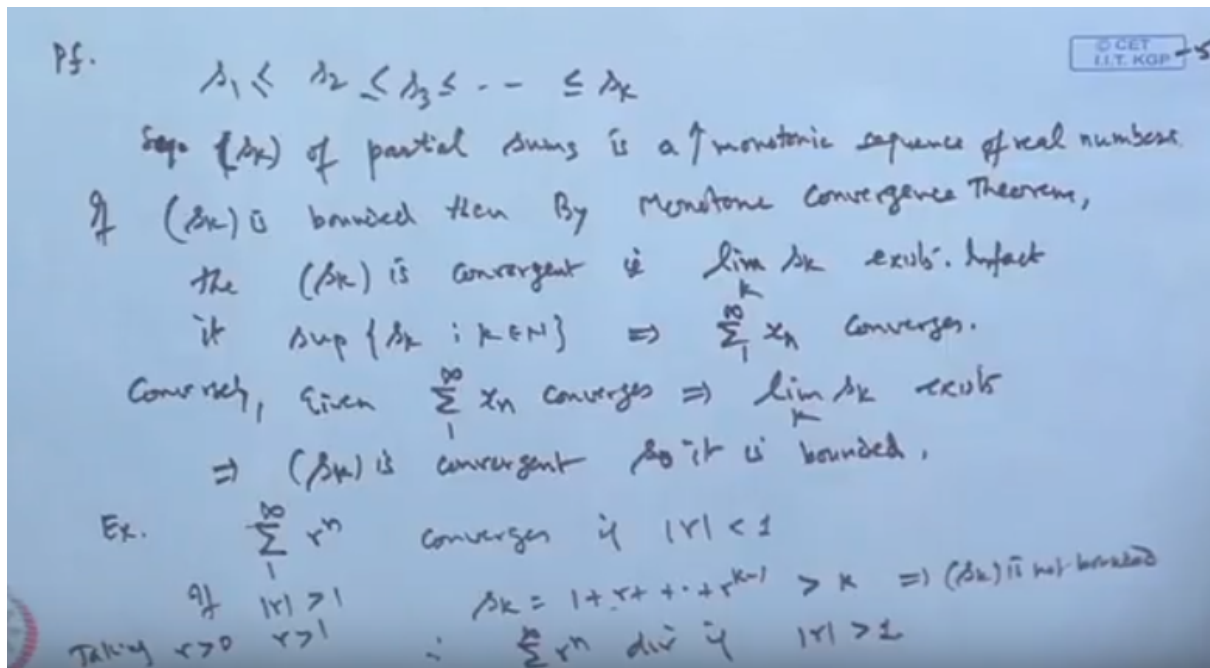 © CET
I.I.T. KGP
Pf. s₁ ≤ s₂ ≤ s₃ ≤ - - ≤ sₖ
(sₖ) of partial sums is a ↑ monotonic sequence of real numbers.
If (sₖ) is bounded then By Monotone Convergence Theorem,
the (sₖ) is convergent ie lim_k sₖ exists. Infact
it sup {sₖ : k ∈ N} ⇒ ∑₁^∞ xₙ converges.
Conversely, Given ∑₁^∞ xₙ converges ⇒ lim_k sₖ exists
⇒ (sₖ) is convergent so it is bounded.
Ex. ∑₁^∞ rⁿ converges if |r| < 1
If |r| > 1 sₖ = 1 + r + · + r^{k-1} > k ⇒ (sₖ) is not bounded
Taking r>0 r>1 ∴ ∑ rⁿ div if |r| > 1